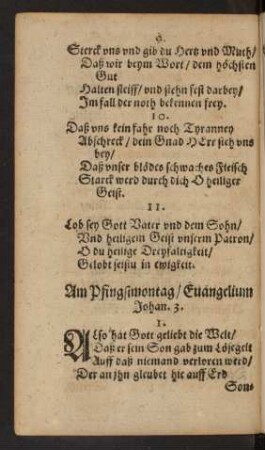 9.
Sterck vns vnd gib du Hertz vnd Muth/
Daß wir beym Wort/ dem höchsten
Gut
Halten steiff/ vnd stehn fest darbey/
Im fall der noth bekennen frey.
10.
Daß vns kein fahr noch Tyranney
Abschreck/ dein Gnad HErr steh vns
bey/
Daß vnser blödes schwaches Fleisch
Starck werd durch dich O heiliger
Geist.
11.
Lob sey Gott Vater vnd dem Sohn/
Vnd heiligem Geist vnserm Patron/
O du heilige Dreyfaltigkeit/
Gelobt seistu in ewigkeit.
Am Pfingstmontag/ Euangelium
Johan. 3.
1.
ALso hat Gott geliebt die Welt/
Daß er sein Son gab zum Lösegelt
Auff daß niemand verloren werd/
Der an jhn gleubet hie auff Erd
Son-